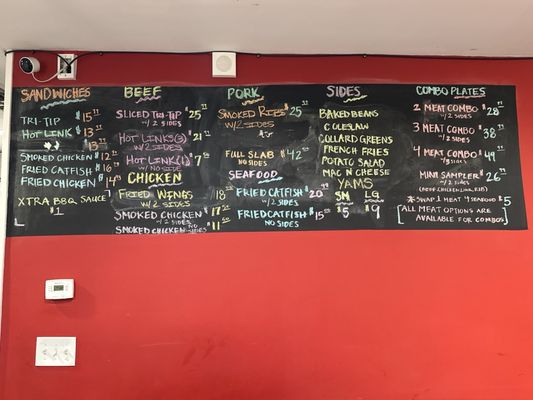 SANDWICHES
TRI-TIP $15
HOT LINK $13
$13
SMOKED CHICKEN $12
FRIED CATFISH $16
FRIED CHICKEN $14
XTRA BBQ SAUCE
$1
BEEF
SLICED TRI-TIP $25
W/ 2 SIDES
HOT LINKS $21
W/ 2 SIDES
HOT LINK (1) $17
W/ NO SIDE
CHICKEN
FRIED WINGS 18
W/ 2 SIDES
SMOKED CHICKEN $17
W/ 2 SIDES
SMOKED CHICKEN NO SIDES $11
PORK
SMOKED RIBS $25
W/ 2 SIDES
FULL SLAB $42
NO SIDES
SEAFOOD
FRIED CATFISH $20
W/ 2 SIDES
FRIED CATFISH $15
NO SIDES
SIDES
BAKED BEANS
COLESLAW
COLLARD GREENS
FRENCH FRIES
POTATO SALAD
MAC N CHEESE
YAMS
SM LG
$5 $9
COMBO PLATES
2 MEAT COMBO $28
W/ 2 SIDES
3 MEAT COMBO $38
W/ 2 SIDES
4 MEAT COMBO $49
W/ 3 SIDES
MINI SAMPLER $26
W/ 2 SIDES
(BEEF, CHICKEN, LINK, RIB)
* SWAP 1 MEAT 4 SEAFOOD $5
[ALL MEAT OPTIONS ARE
AVAILABLE FOR COMBOS]